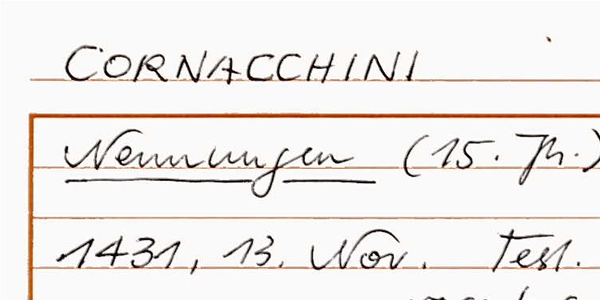 CORNACCHINI
Nennungen (15. Jh.)
1431, 13. Nov. Test.